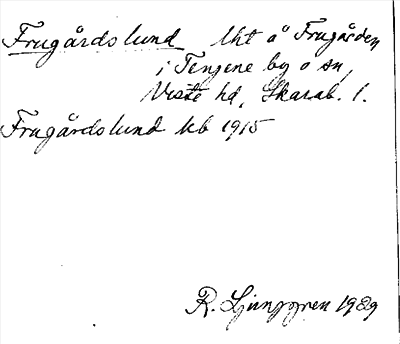 Frugårdslund lht å Frugården
i Tengene by o sn,
Viste hd, Skarab. l.
Frugårdslund kb 1915
R. Ljunggren 1989